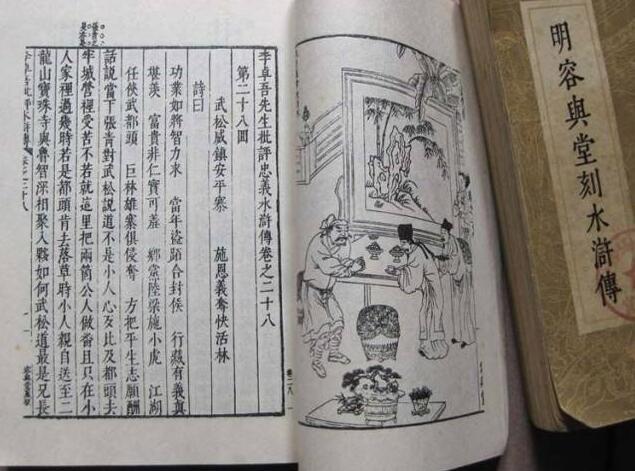 李卓吾先生批評忠義水滸傳卷之二十八
第二十八回
武松威鎮安平寨 施恩義奪快活林
詩曰
功業如將智力求 當年盜跖合封侯 行藏有義真
堪羨 富貴非仁實可羞 鄉黨陸梁施小虎 江湖
任俠武都頭 巨林雄寨俱侵奪 方把平生志願酬
話說當下張青對武松說道不是小人心歹比及都頭去
牢城營裡受苦不若就這里把兩箇公人做番且只在小
人家裡過幾時若是都頭肯去落草時小人親自送至二
龍山寶珠寺與魯智深相聚入夥如何武松道最是兄長
明容與堂刻水滸傳